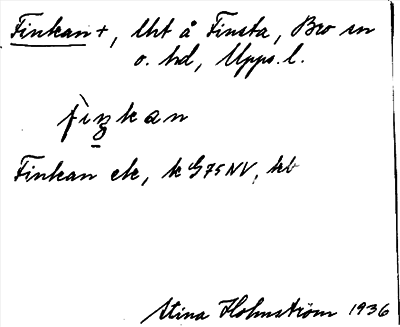 Finkan +, lht å Finsta, Bro sn
o. hd, Upps. l.
fìŋkan
Finkan ek, k G75NV, kb
Stina Holmström 1936